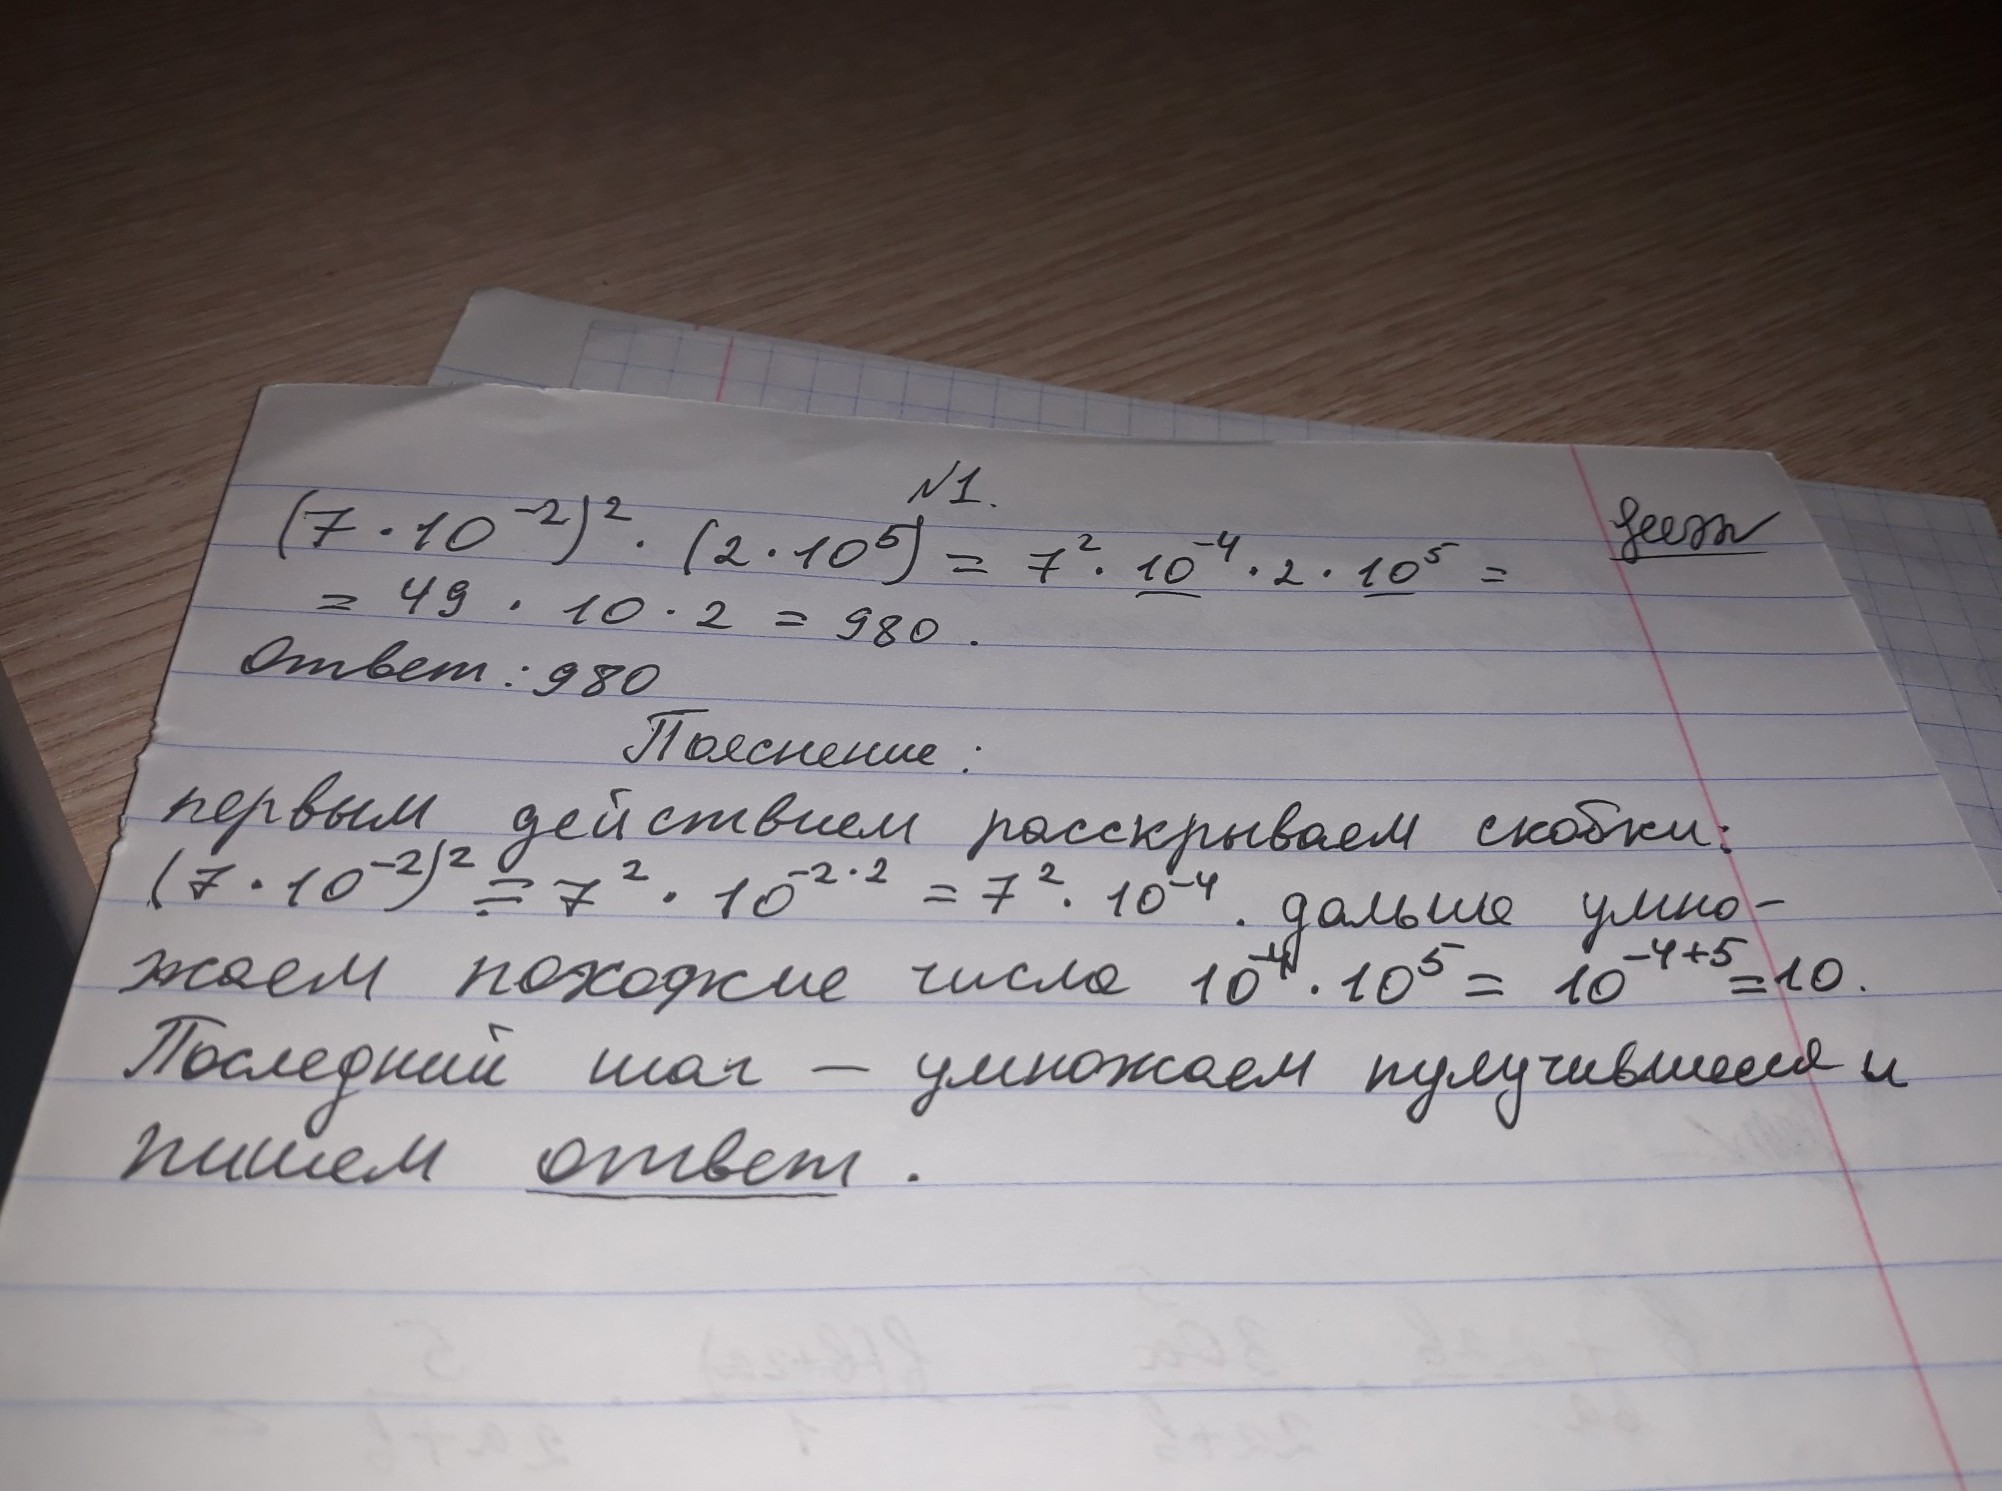 N1.
(7 · 10⁻²)² · (2 · 10⁵) = 7² · 10⁻⁴ · 2 · 10⁵ =
= 49 · 10 · 2 = 980.
Ответ: 980
Пояснение:
первым действием расскрываем скобки:
(7 · 10⁻²)² = 7² · 10⁻²·² = 7² · 10⁻⁴. дальше умно-
жаем похожие числа 10⁻⁴ · 10⁵ = 10⁻⁴⁺⁵ = 10.
Последний шаг — умножаем пулучившиеся и
пишем ответ.